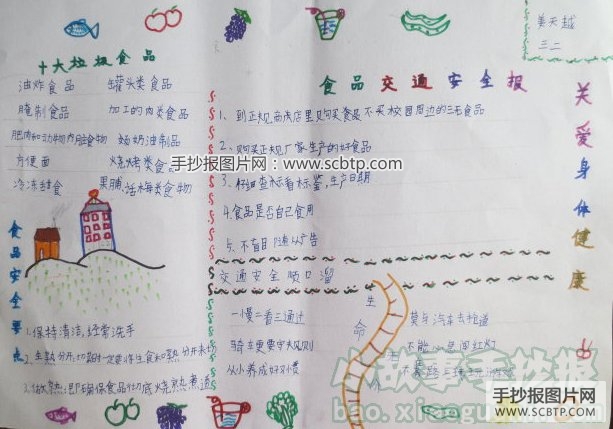 姜天越
三二
十大垃圾食品
油炸食品 罐头类食品
腌制食品 加工的肉类食品
肥肉和动物内脏食物 奶油制品
方便面 烧烤类食品
冷冻甜食 果脯、话梅类食物
食品交通安全报
1、到正规商店里购买食品不买校园周边的三无食品
2、购买正规厂家生产的好食品
3、仔细查标看标签,生产日期
4.食品是否自己食用
5、不盲目随从广告
关爱身体健康
手抄报图片网:www.scbtp.com
食品安全要点
1.保持清洁,经常洗手
2、生熟分开,切菜时一定要将生食和熟分开
交通安全顺口溜
一慢二看三通过
骑车更要守规则
从小养成好习惯
生命
莫与汽车去抢道
小故事手抄报
手抄报图片网
WWW.SCBTP.COM